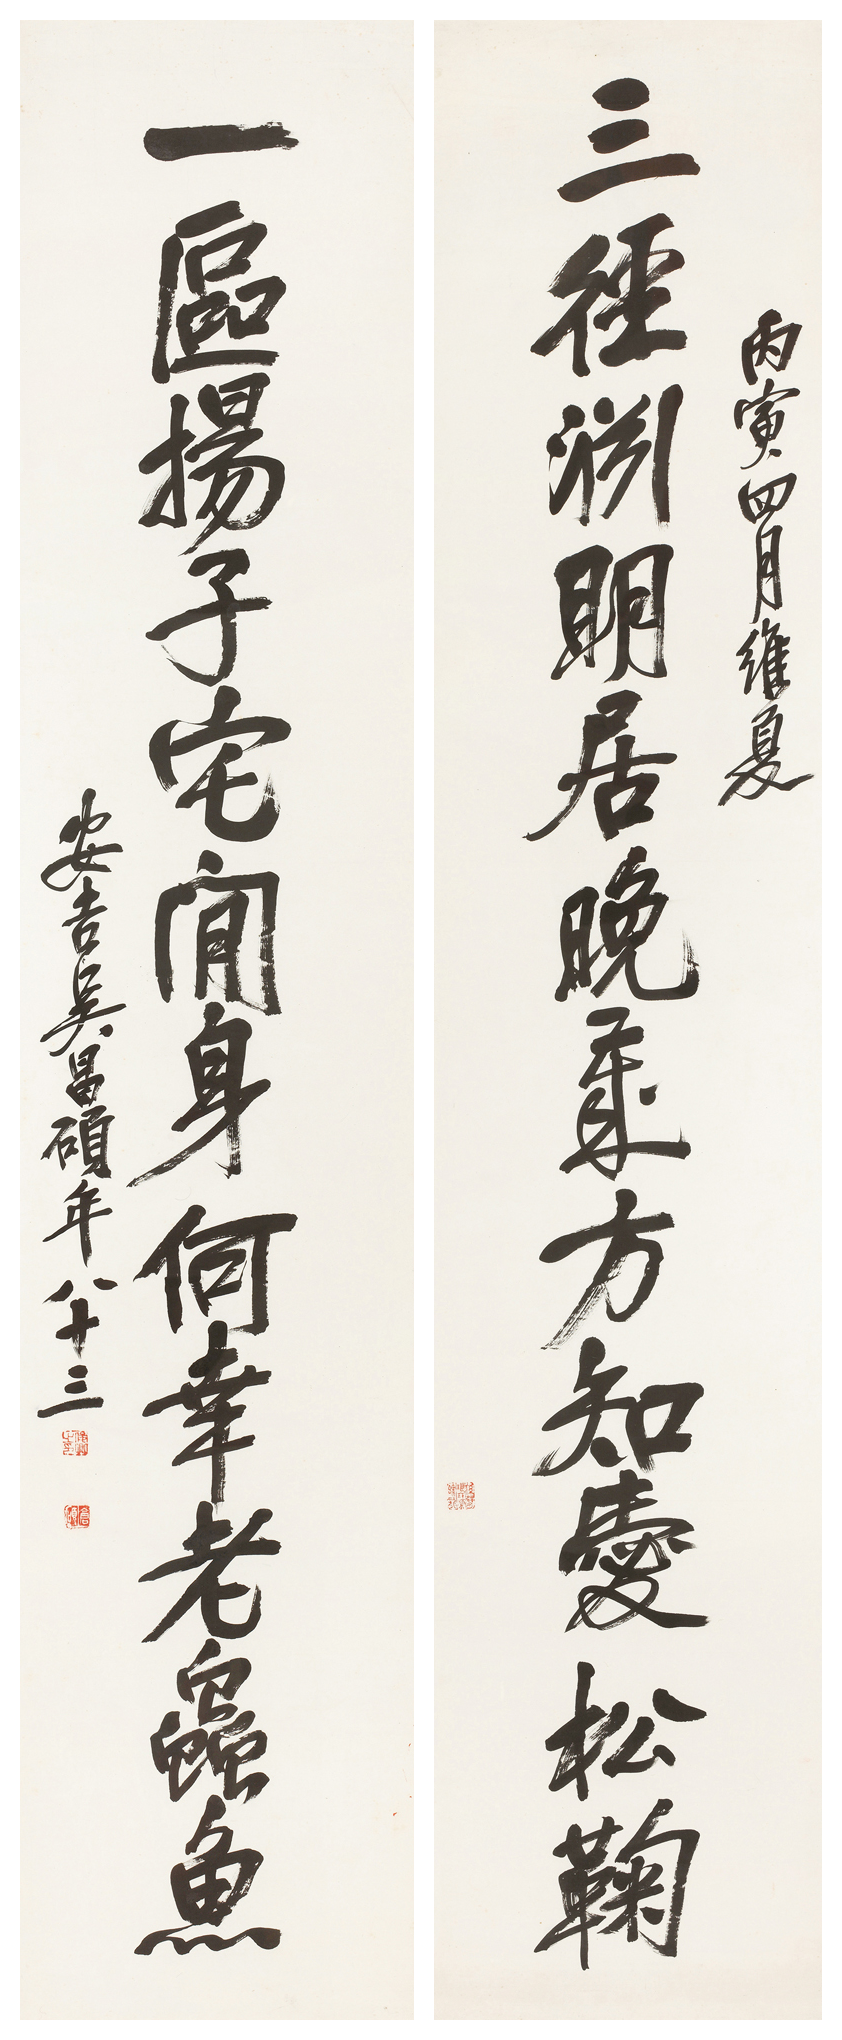 丙寅四月維夏
三徑淵明居晚歲方知愛松鞠
一區揚子宅閒身何幸老蟲魚
安吉吳昌碩年八十三
俊卿之印
倉碩